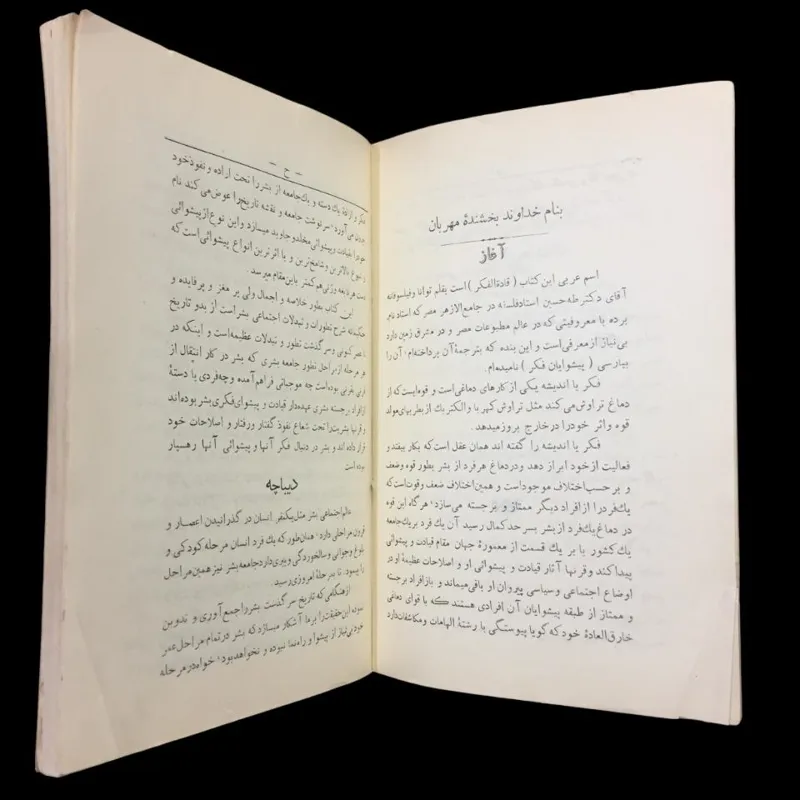 بنام خداوند بخشندهٔ مهربان
آغاز
اسم عربی این کتاب ( قادةالفکر ) است بقلم توانا وفیلسوفانه
آقای دکترطه‌حسین استادفلسفه در جامع‌الازهر مصر که استاد نام
برده با معروفیتی که در عالم مطبوعات مصر و در مشرق زمین دارد
بی‌نیاز ازمعرفی‌است و این بنده که بترجمهٔ آن پرداخته‌ام، آن را
بپارسی ( پیشوایان فکر ) نامیده‌ام.
فکر یا اندیشه یکی از کارهای دماغی‌است و قوه‌ایست که از
دماغ تراوش می‌کند مثل تراوش کهربا و الکتریك از بطریهای مولد
قوه واثر خودرا درخارج بروز میدهد.
فکر یا اندیشه را گفته اند همان عقل است که بکار بیفتد و
فعالیت ازخود ابراز دهد ودردماغ هرفرد از بشر بطور قوه وضعف
و برحسب اختلاف موجوداست و همین اختلاف ضعف وقوت‌است که
یك‌فرد را از افراد دیگر ممتاز و برجسته می‌سازد؛ هرگاه این قوه
در دماغ یك‌فرد از بشر بسرحد کمال رسید آن یك فرد بریك‌جامعه
یك کشور یا بر یك قسمت از معمورهٔ جهان مقام قیادت و پیشوائی
پیدا کند وقرنها آثار قیادت و پیشوائی او و اصلاحات عظیمهٔ او در
اوضاع اجتماعی وسیاسی پیروان او باقی میماند و بازافراد برجسته
و ممتاز از طبقه پیشوایان آن افرادی هستند که با قوای دماغی
خارق‌العادهٔ خود که گویا پیوستگی با رشتهٔ الهامات ومکاشفات‌دارد
- ح -
فکر و ارادهٔ یك دسته و یك جامعه از بشر را تحت اراده و نفوذ خود
می‌آورد، سرنوشت جامعه و نقشه تاریخ‌را عوض می‌کند نام
خودرا بقیادت و پیشوائی مخلد و جاوید میسازد و این نوع از پیشوائی
بالاترین و شامخ‌ترین و با اثرترین انواع پیشوائی‌است که
کمتر باین‌مقام میرسد.
این کتاب بطور خلاصه و اجمال ولی پر مغز و پرفایده و
حکیمانه شرح تطورات و تبدلات اجتماعی بشراست از بدو تاریخ
تا عصر کنونی و سرگذشت تطور و تبدلات عظیمه‌است و اینکه در
هر مرحله از مراحل تطور جامعه بشری که بشر در کار انتقال از
قرنی بقرنی بوده‌است چه موجباتی فراهم‌آمده و چه فردی یا دستهٔ
از افراد برجسته بشری عهده‌دار قیادت و پیشوای فکری بشر بوده‌اند
و قرنها بشریت را تحت شعاع نفوذ گفتار ورفتار و اصلاحات خود
قرار داده اند و بشر در دنبال فکر آنها و پیشوائی آنها رهسپار
بوده است
دیباچه
عالم‌اجتماعی بشر مثل یکنفر انسان در گذرانیدن اعصار و
قرون مراحلی دارد؛ همان‌طور که یك فرد انسان مرحله کودکی و
بلوغ وجوانی وسالخوردگی وپیری دارد جامعه بشر نیز همین مراحل
را پیمود. تا بمرحلهٔ امروزی رسید.
ازهنگامی‌که تاریخ سرگذشت بشر را جمع‌آوری و تدوین
نموده این‌حقیقت‌را برما آشکار میسازد که بشر در تمام مراحل عمر
خود بی‌نیاز از پیشوا و راه‌نما نبوده و نخواهد بود؛ خواه درمرحله